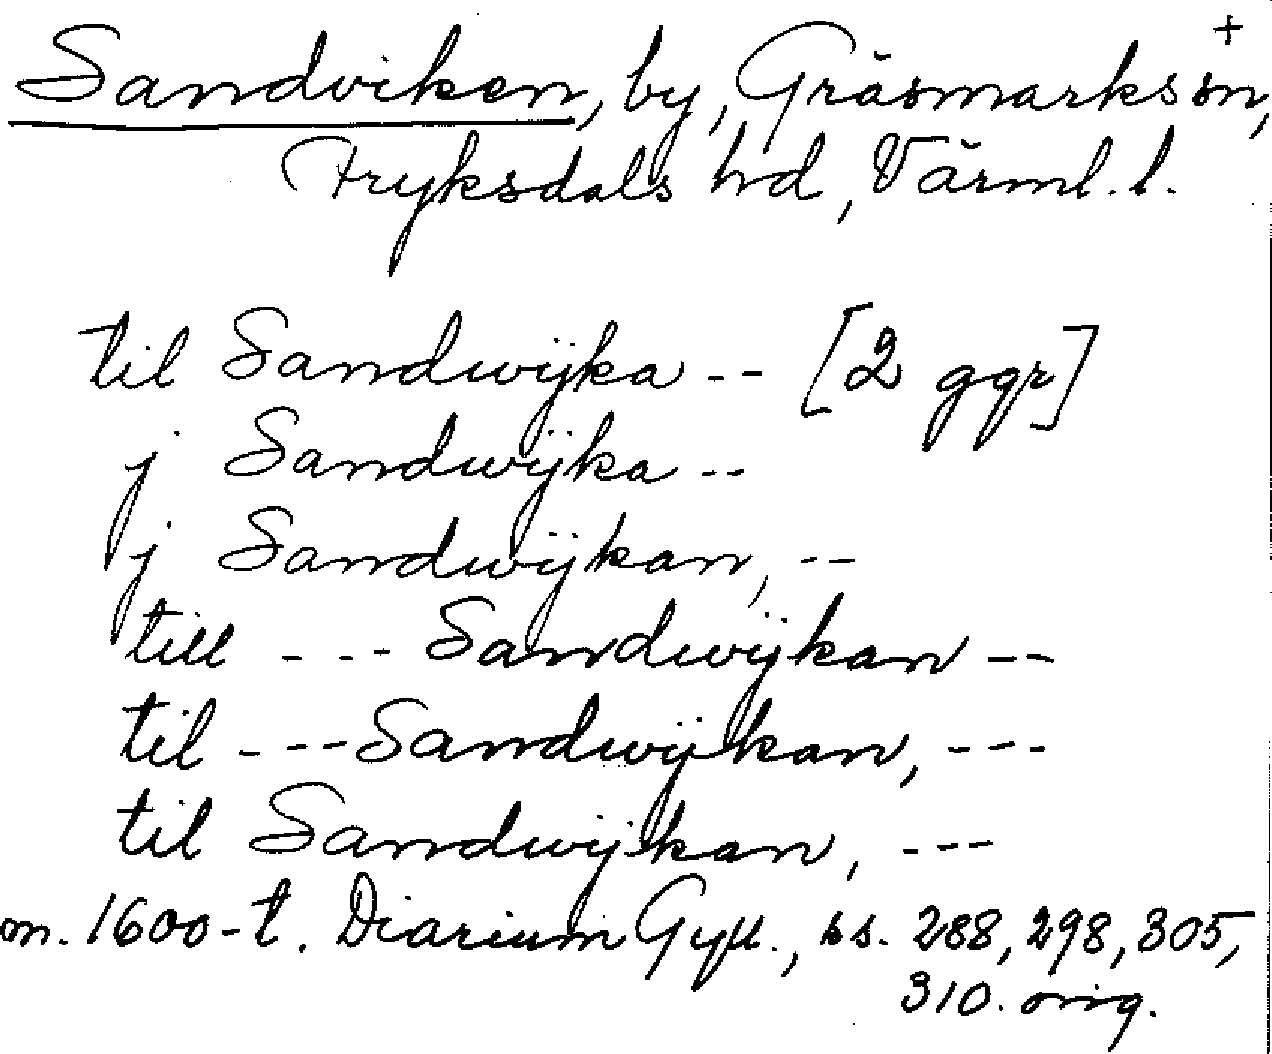 +
Sandviken, by, Gräsmarks sn,
Fryksdals hd, Värml. l.
til Sandwijka -- [2 ggr]
j Sandwijka --
j Sandwijkan, --
till --- Sandwijkan --
til --- Sandwijkan, ---
til Sandwijkan, ---
m. 1600-t. Diarium Gyll., ss. 288, 298, 305,
310. orig.